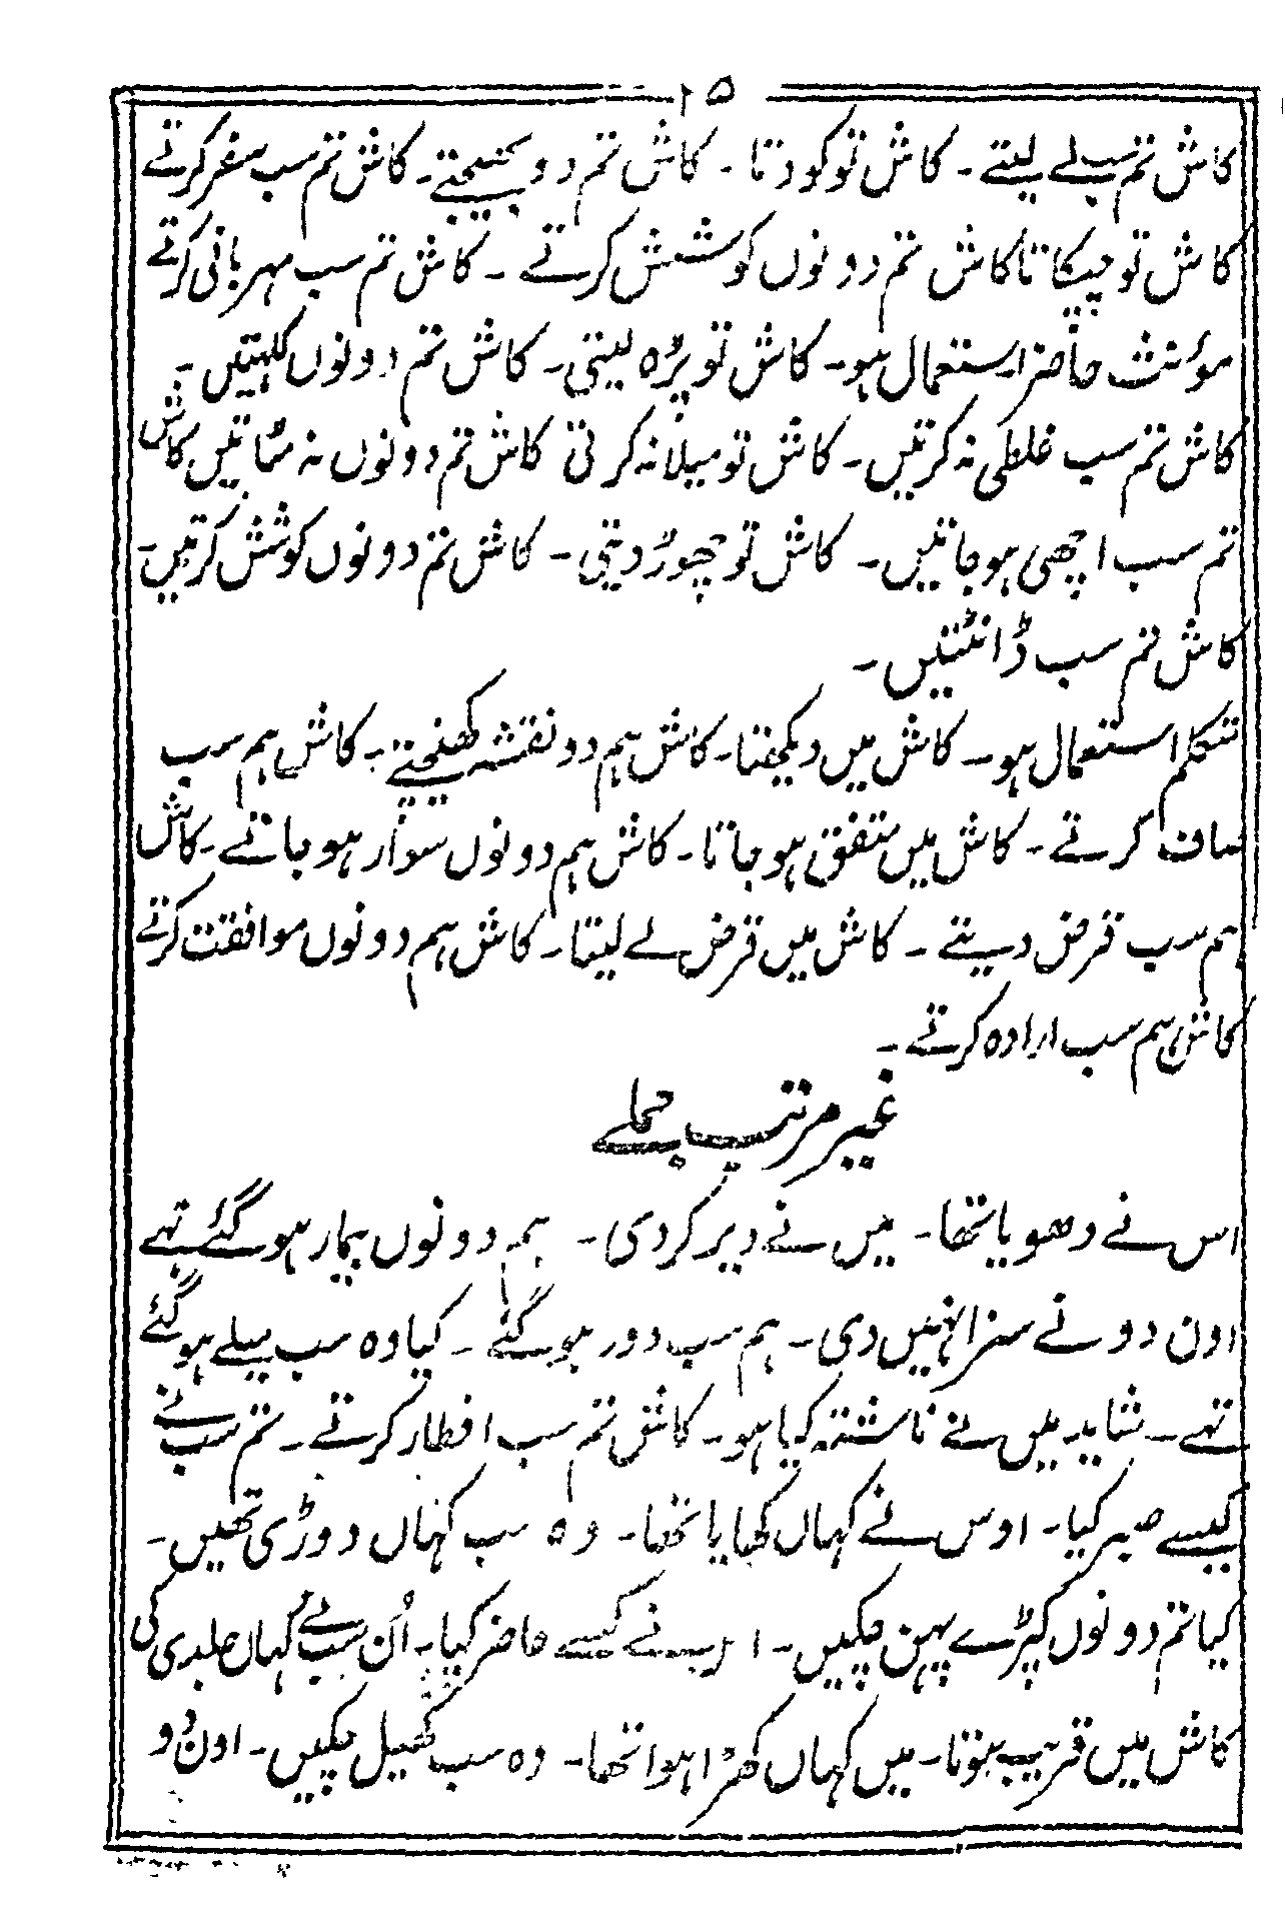 ۱۵
کاش تم سب لے لیتے ۔ کاش تو کودتا ۔ کاش تم دو بھیجتے ۔ کاش تم سب سفر کرتے
کاش تو چپکاتا کاش تم دونوں کوشش کرتے ۔ کاش تم سب مہربانی کرتے
مؤنث حاضر استعمال ہو ۔ کاش تو پڑہ لیتی ۔ کاش تم دونوں لکھتیں ۔
کاش تم سب غلطی نہ کرتیں ۔ کاش تو میلا نہ کرتی کاش تم دونوں نہ ستاتیں کاش
تم سب اچھی ہو جاتیں ۔ کاش تو چھوڑ دیتی ۔ کاش تم دونوں کوشش کرتیں ۔
کاش تم سب ڈانٹتیں ۔
متکلم استعمال ہو ۔ کاش میں دیکھتا ۔ کاش ہم دو نقشہ کھینچتے ۔ کاش ہم سب
صاف کرتے ۔ کاش میں متفق ہو جاتا ۔ کاش ہم دونوں سوار ہو جاتے ۔ کاش
ہم سب قرض دیتے ۔ کاش میں قرض لے لیتا ۔ کاش ہم دونوں موافقت کرتے
کاش ہم سب ارادہ کرتے ۔
غیر مرتب جملے
اس نے دھویا تھا ۔ میں نے دیر کردی ۔ ہم دونوں بیمار ہو گئے تہے
اون دو نے سزا نہیں دی ۔ ہم سب دور ہو گئے ۔ کیا وہ سب میلے ہو گئے
تہے ۔ شاید میں نے ناشتہ کیا ہو ۔ کاش تم سب افطار کرتے ۔ تم سب نے
کیسے صبر کیا ۔ اوس نے کہاں کھایا تھا ۔ وہ سب کہاں دوڑی تھیں ۔
کیا تم دونوں کپڑے پہن چکیں ۔ اس نے کیسے حاضر کیا ۔ اُن سب نے کہاں جلدی کی
کاش میں قریب ہوتا ۔ میں کہاں کھڑا ہوا تھا ۔ وہ سب کھیل چکیں ۔ اون دو